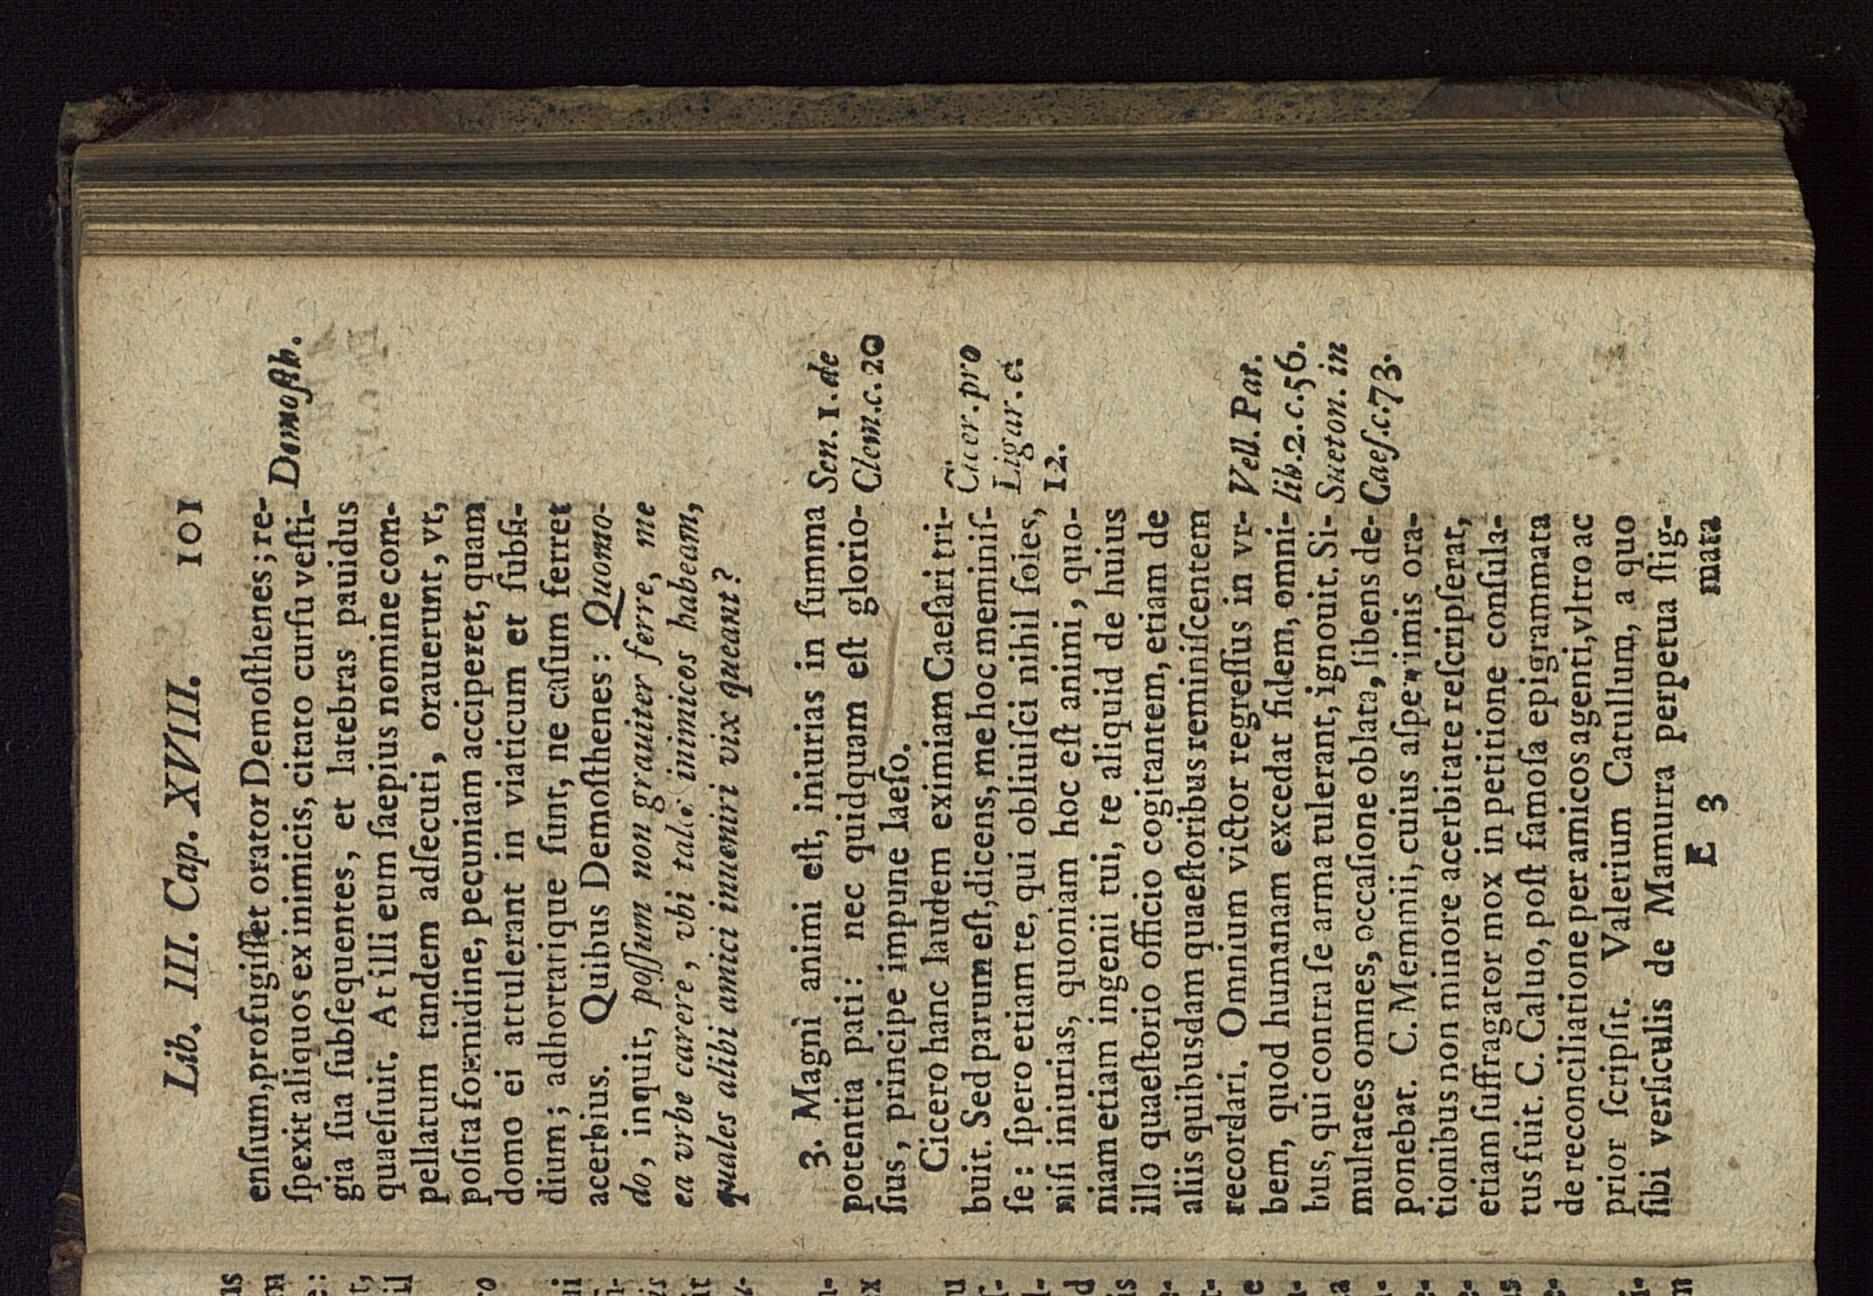 Lib. III. Cap. XVIII. 101
enſium, profugiſſet orator Demoſthenes; re-
ſpexit aliquos ex inimicis, citato curſu veſti-
gia ſua ſubſequentes, et latebras pauidus
quaeſiuit. At illi eum ſaepius nomine com-
pellatum tandem adſecuti, orauerunt, vt,
poſita formidine, pecuniam acciperet, quam
domo ei attulerant in viaticum et ſubſi-
dium; adhortatique ſunt, ne caſum ferret
acerbius. Quibus Demoſthenes: Quomo-
do, inquit, poſſum non grauiter ferre, me
ea vrbe carere, vbi tales inimicos habeam,
quales alibi amici inueniri vix queant?
Demoſth.
3. Magni animi eſt, iniurias in ſumma
potentia pati: nec quidquam eſt glorio-
ſius, principe impune laeſo.
Sen. 1. de
Clem. c. 20
Cicero hanc laudem eximiam Caeſari tri-
buit. Sed parum eſt, dicens, me hoc meminiſ-
ſe: ſpero etiam te, qui obliuiſci nihil ſoles,
niſi iniurias, quoniam hoc eſt animi, quo-
niam etiam ingenii tui, te aliquid de huius
illo quaeſtorio officio cogitantem, etiam de
aliis quibusdam quaeſtoribus reminiſcentem
recordari. Omnium victor regreſſus in vr-
bem, quod humanam excedat fidem, omni-
bus, qui contra ſe arma tulerant, ignouit. Si-
multates omnes, occaſione oblata, libens de-
ponebat. C. Memmii, cuius aſperrimis ora-
tionibus non minore acerbitate reſcripſerat,
etiam ſuffragator mox in petitione conſula-
tus fuit. C. Caluo, poſt famoſa epigrammata
de reconciliatione per amicos agenti, vltro ac
prior ſcripſit. Valerium Catullum, a quo
ſibi verſiculis de Mamurra perpetua ſtig-
Cicer. pro
Ligar. c.
12.
Vell. Pat.
lib. 2. c. 56.
Sueton. in
Caeſ. c. 73.
E 3 mata